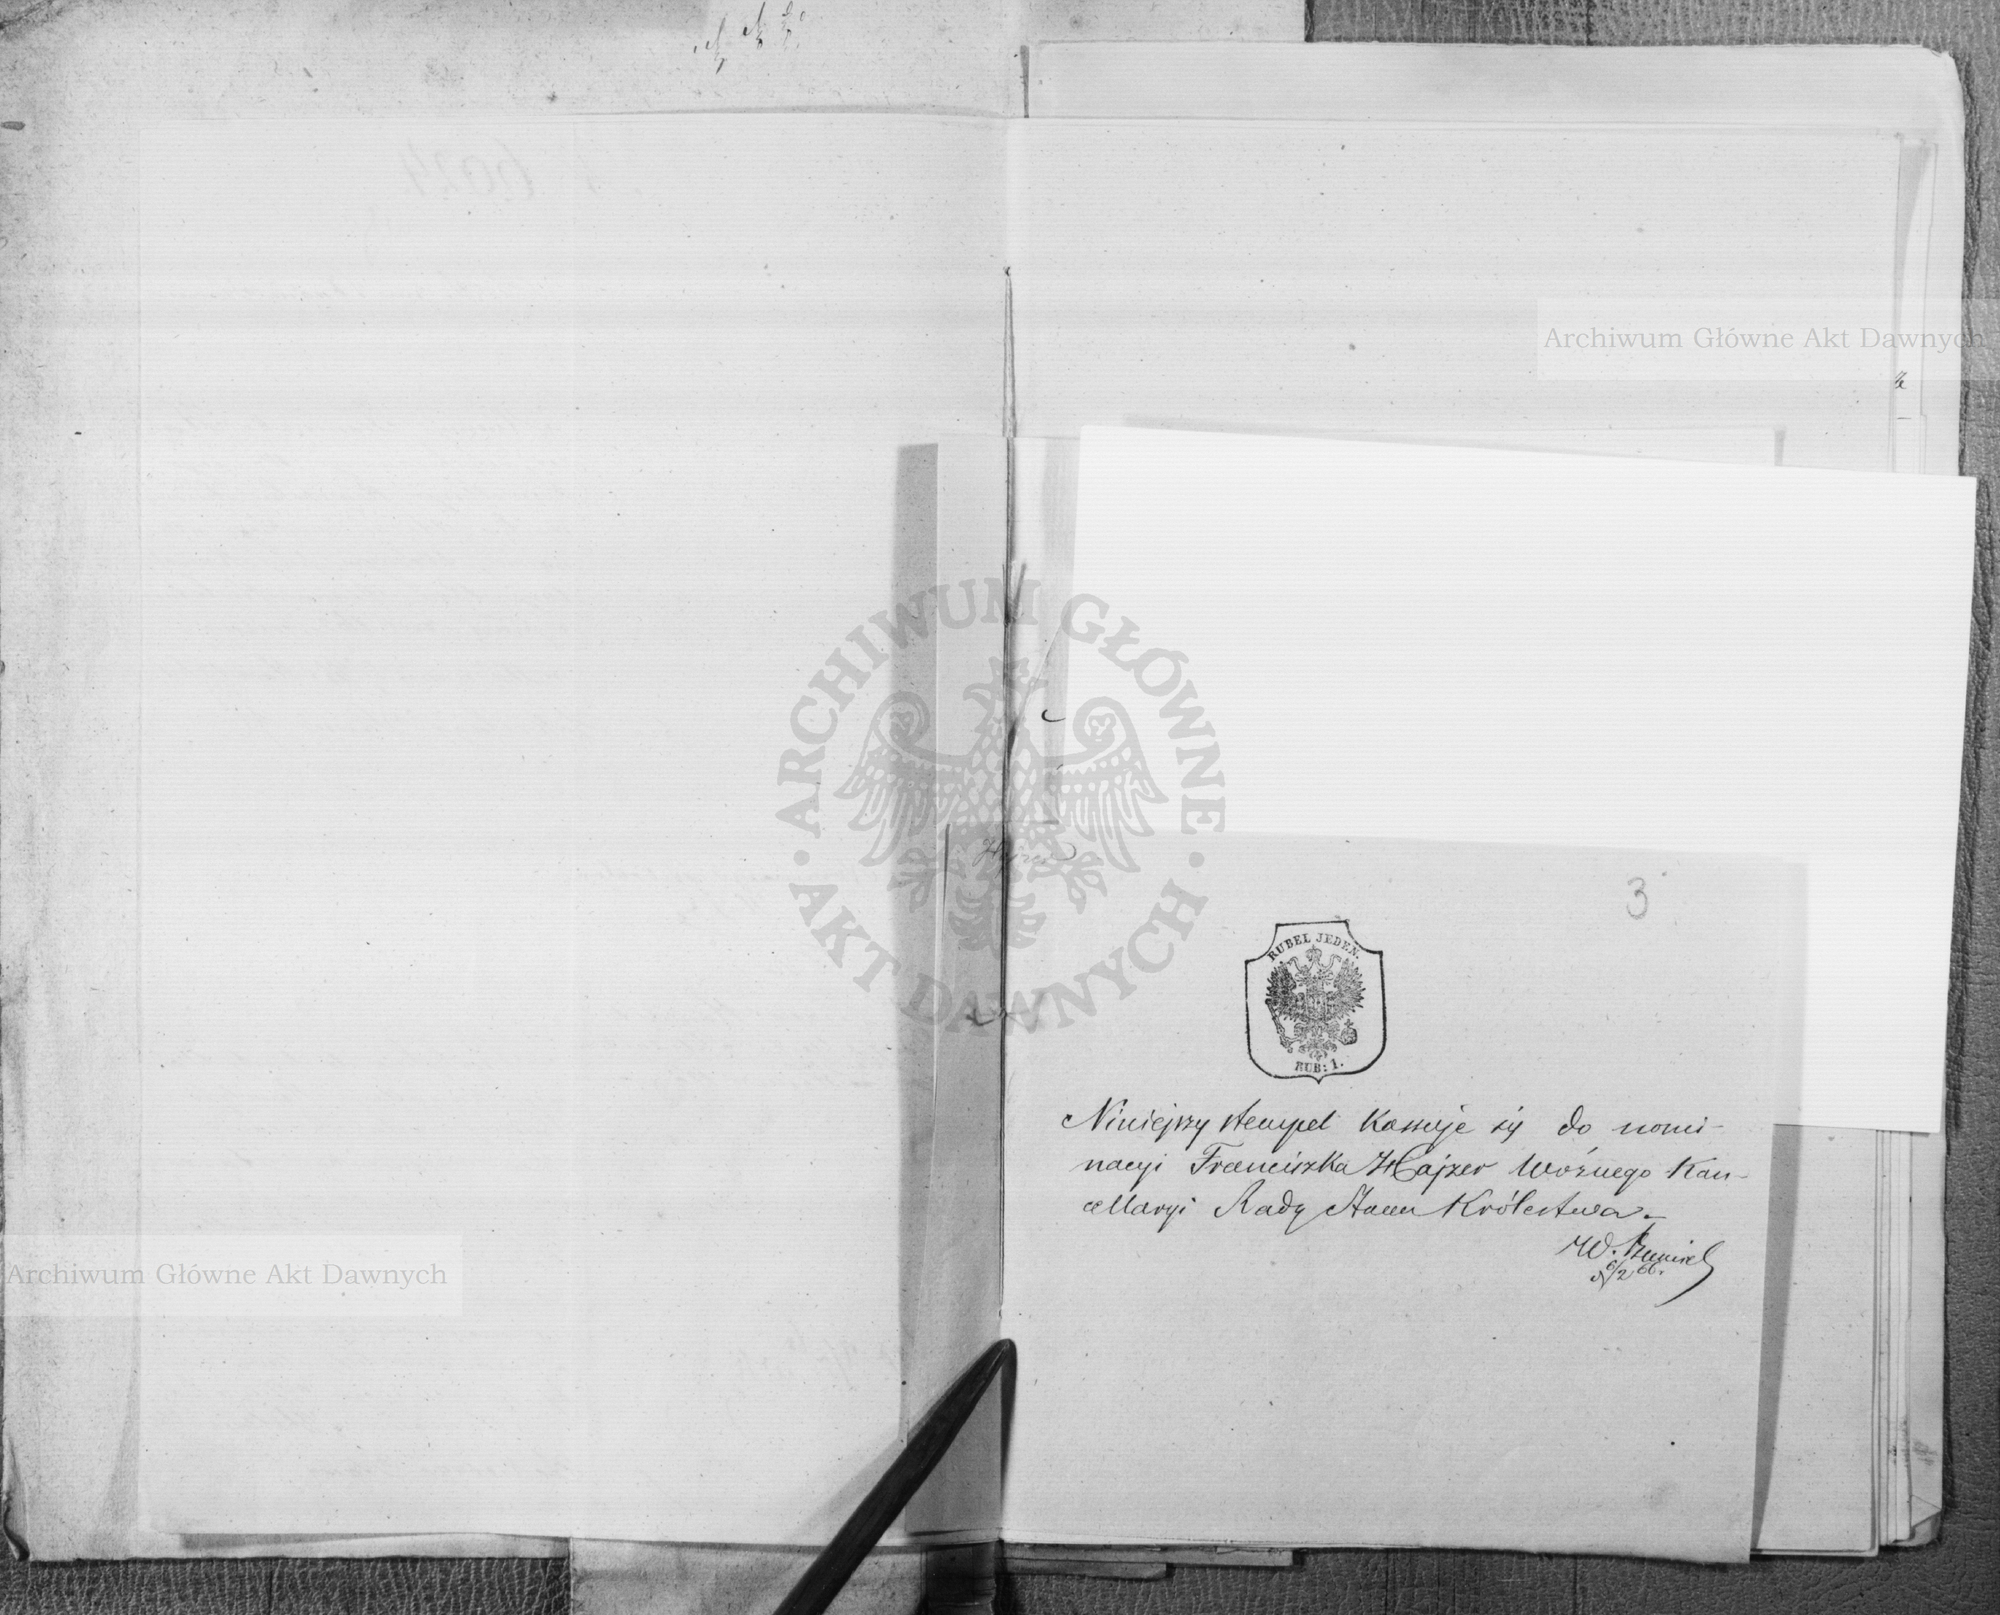 Archiwum Główne Akt Dawnych
ARCHIWUM GŁÓWNE
AKT DAWNYCH
3
RUBEL JEDEN.
RUB: 1.
Niniejszy stempel kassuje się do nomi-
nacyi Franciszka Hajzer Woźnego Kan-
cellaryi Rady Stanu Królestwa.
W.
6/2 66.
Archiwum Główne Akt Dawnych